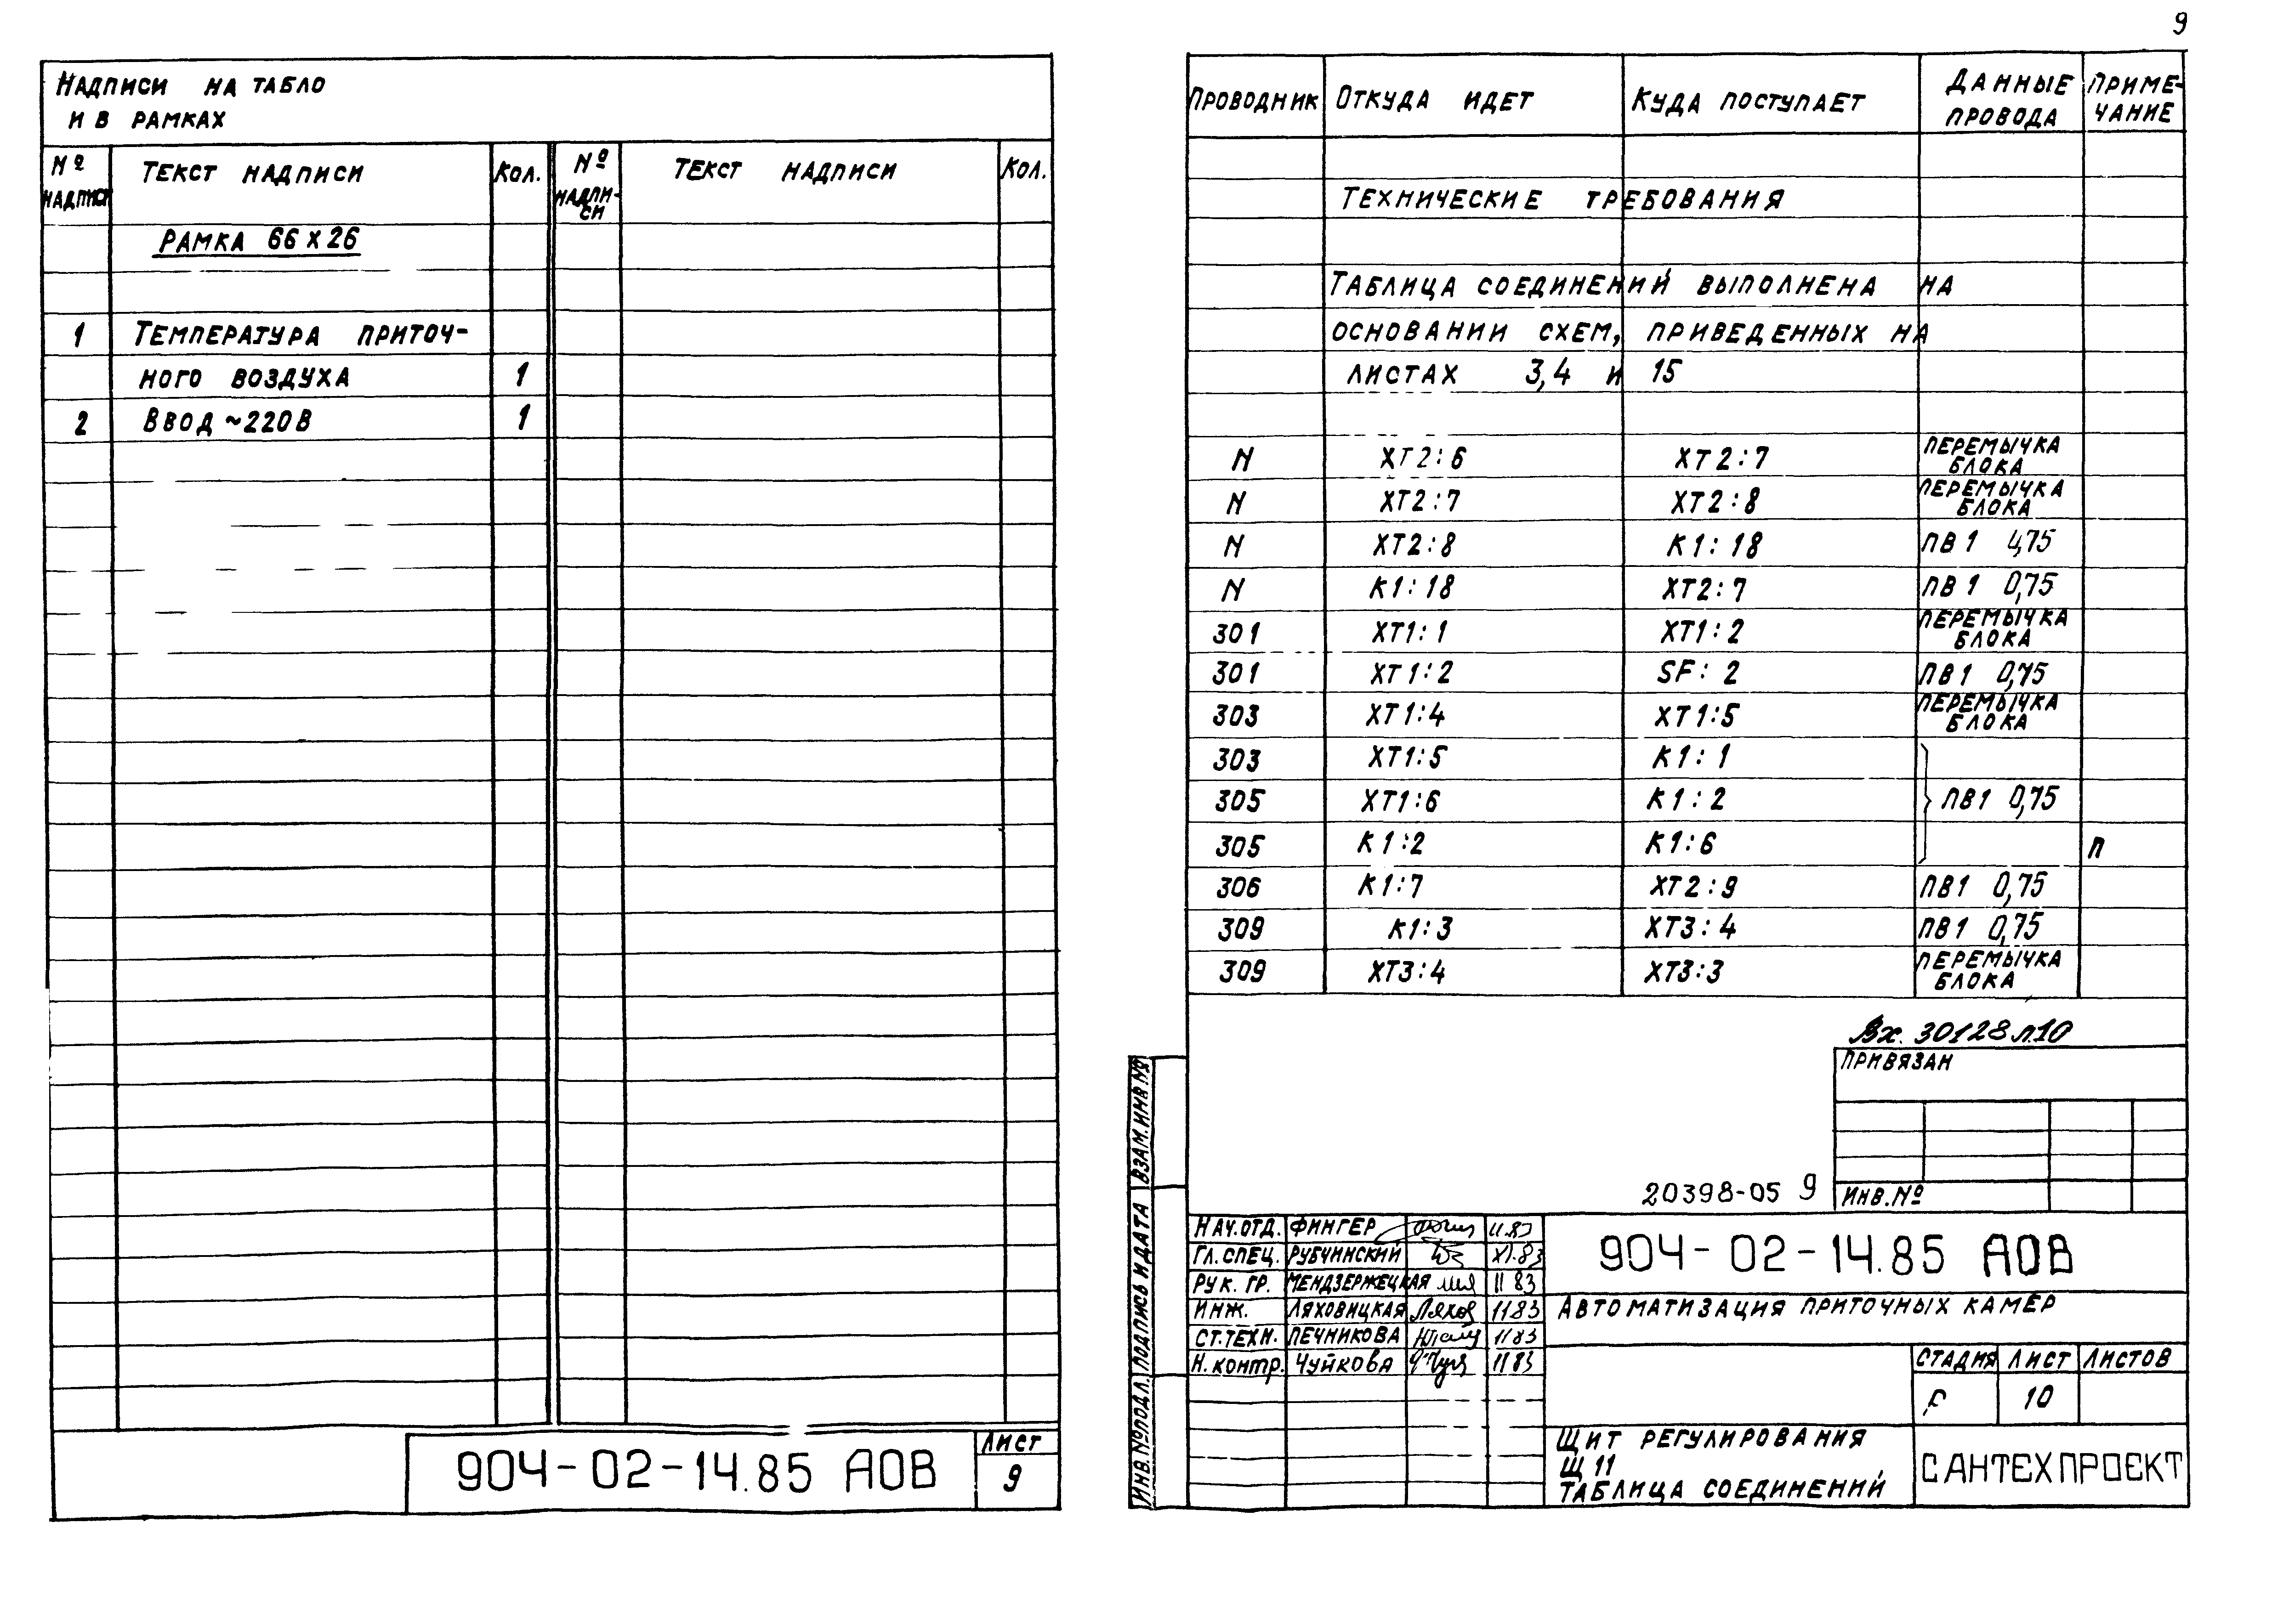 9
НАДПИСИ НА ТАБЛО
И В РАМКАХ
№ НАДПИСИ ТЕКСТ НАДПИСИ КОЛ. № НАДПИ-СИ ТЕКСТ НАДПИСИ КОЛ.
РАМКА 66 X 26
1 ТЕМПЕРАТУРА ПРИТОЧ-
НОГО ВОЗДУХА 1
2 ВВОД ~220В 1
904-02-14.85 АОВ
ЛИСТ
9
ПРОВОДНИК ОТКУДА ИДЕТ КУДА ПОСТУПАЕТ ДАННЫЕ ПРОВОДА ПРИМЕ-ЧАНИЕ
ТЕХНИЧЕСКИЕ ТРЕБОВАНИЯ
ТАБЛИЦА СОЕДИНЕНИЙ ВЫПОЛНЕНА НА
ОСНОВАНИИ СХЕМ, ПРИВЕДЕННЫХ НА
ЛИСТАХ 3,4 И 15
N XT2:6 XT2:7 ПЕРЕМЫЧКА БЛОКА
N XT2:7 XT2:8 ПЕРЕМЫЧКА БЛОКА
N XT2:8 K1:18 ПВ1 0,75
N K1:18 XT2:7 ПВ1 0,75
301 XT1:1 XT1:2 ПЕРЕМЫЧКА БЛОКА
301 XT1:2 SF:2 ПВ1 0,75
303 XT1:4 XT1:5 ПЕРЕМЫЧКА БЛОКА
303 XT1:5 K1:1
305 XT1:6 K1:2 ПВ1 0,75
305 K1:2 K1:6 П
306 K1:7 XT2:9 ПВ1 0,75
309 K1:3 XT3:4 ПВ1 0,75
309 XT3:4 XT3:3 ПЕРЕМЫЧКА БЛОКА
Вх. 30128 л.10
ПРИВЯЗАН
ИНВ.№
20398-05 9
ВЗАМ.ИНВ.№
ПОДПИСЬ И ДАТА
ИНВ.№ПОДЛ.
НАЧ.ОТД. ФИНГЕР 11.83
ГЛ.СПЕЦ. РУБЧИНСКИЙ XI.83
РУК. ГР. МЕНДЗЕРЖЕЦКАЯ 11 83
ИНЖ. ЛЯХОВИЦКАЯ Ляхов 11 83
СТ.ТЕХН. ПЕЧНИКОВА 11 83
Н.КОНТР. ЧУЙКОВА 11 83
904-02-14.85 АОВ
АВТОМАТИЗАЦИЯ ПРИТОЧНЫХ КАМЕР
СТАДИЯ ЛИСТ ЛИСТОВ
10
ЩИТ РЕГУЛИРОВАНИЯ
Щ 11
ТАБЛИЦА СОЕДИНЕНИЙ
САНТЕХПРОЕКТ